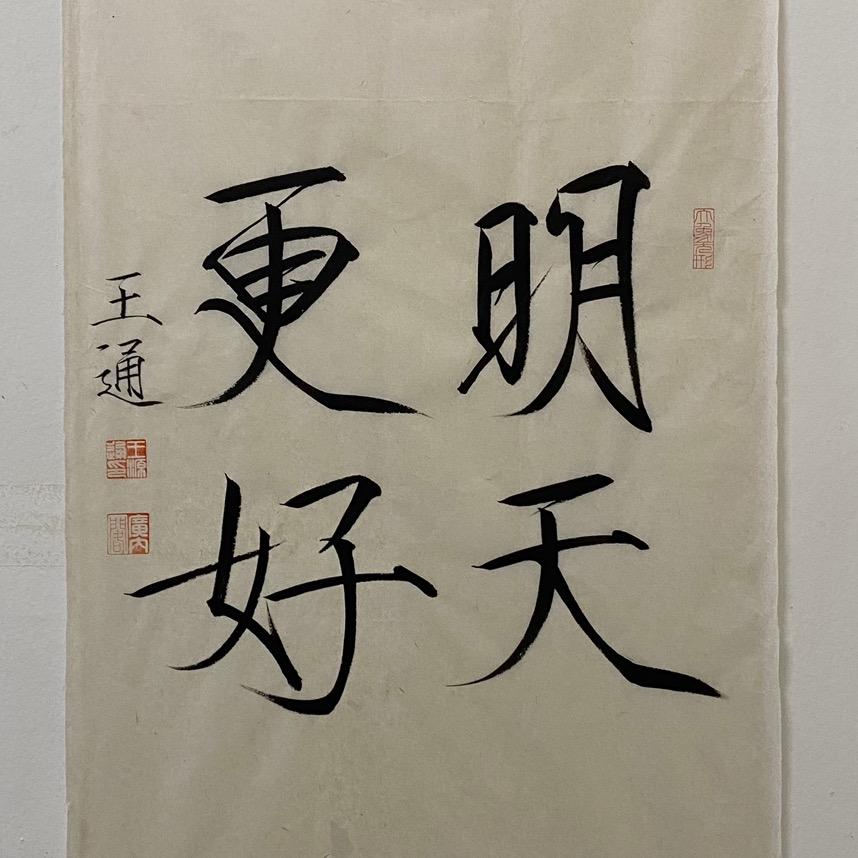 明天
更好
王通